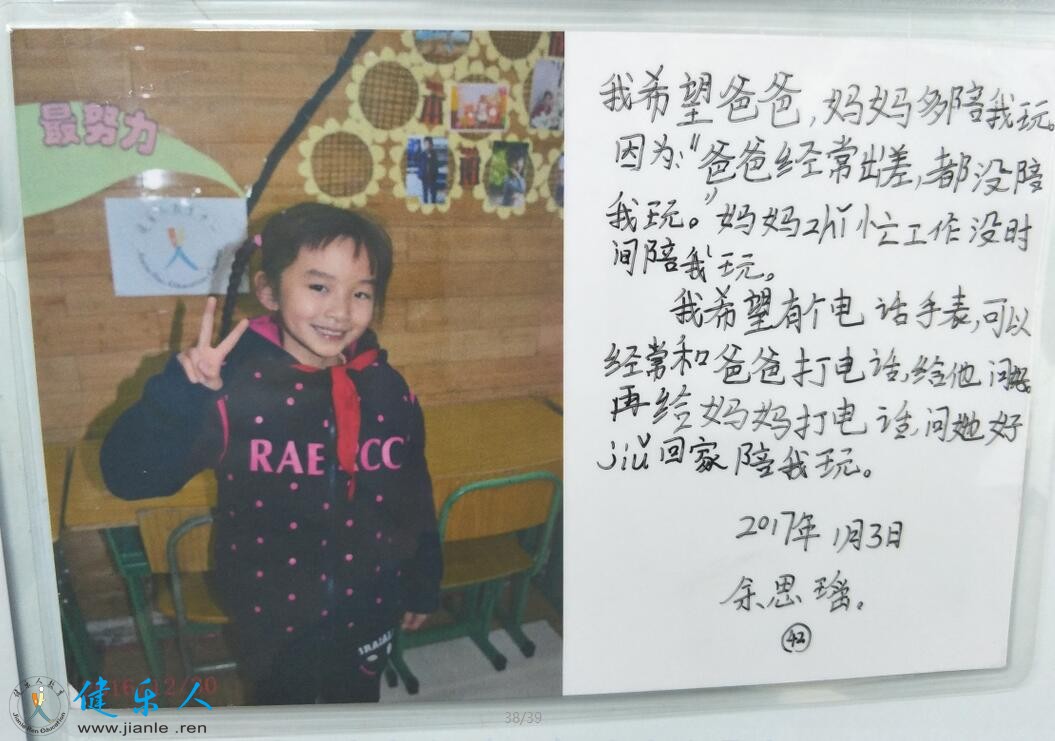 最努力
RAE RCC
2016/12/20
我希望爸爸,妈妈多陪我玩。
因为:"爸爸经常出差,都没陪
我玩。"妈妈zhǐ忙工作没时
间陪我玩。
我希望有个电话手表,可以
经常和爸爸打电话,给他问好。
再给妈妈打电话,问她好
jiǔ回家陪我玩。
2017年1月3日
余思瑶。
42
健乐人
www.jianle .ren
38/39